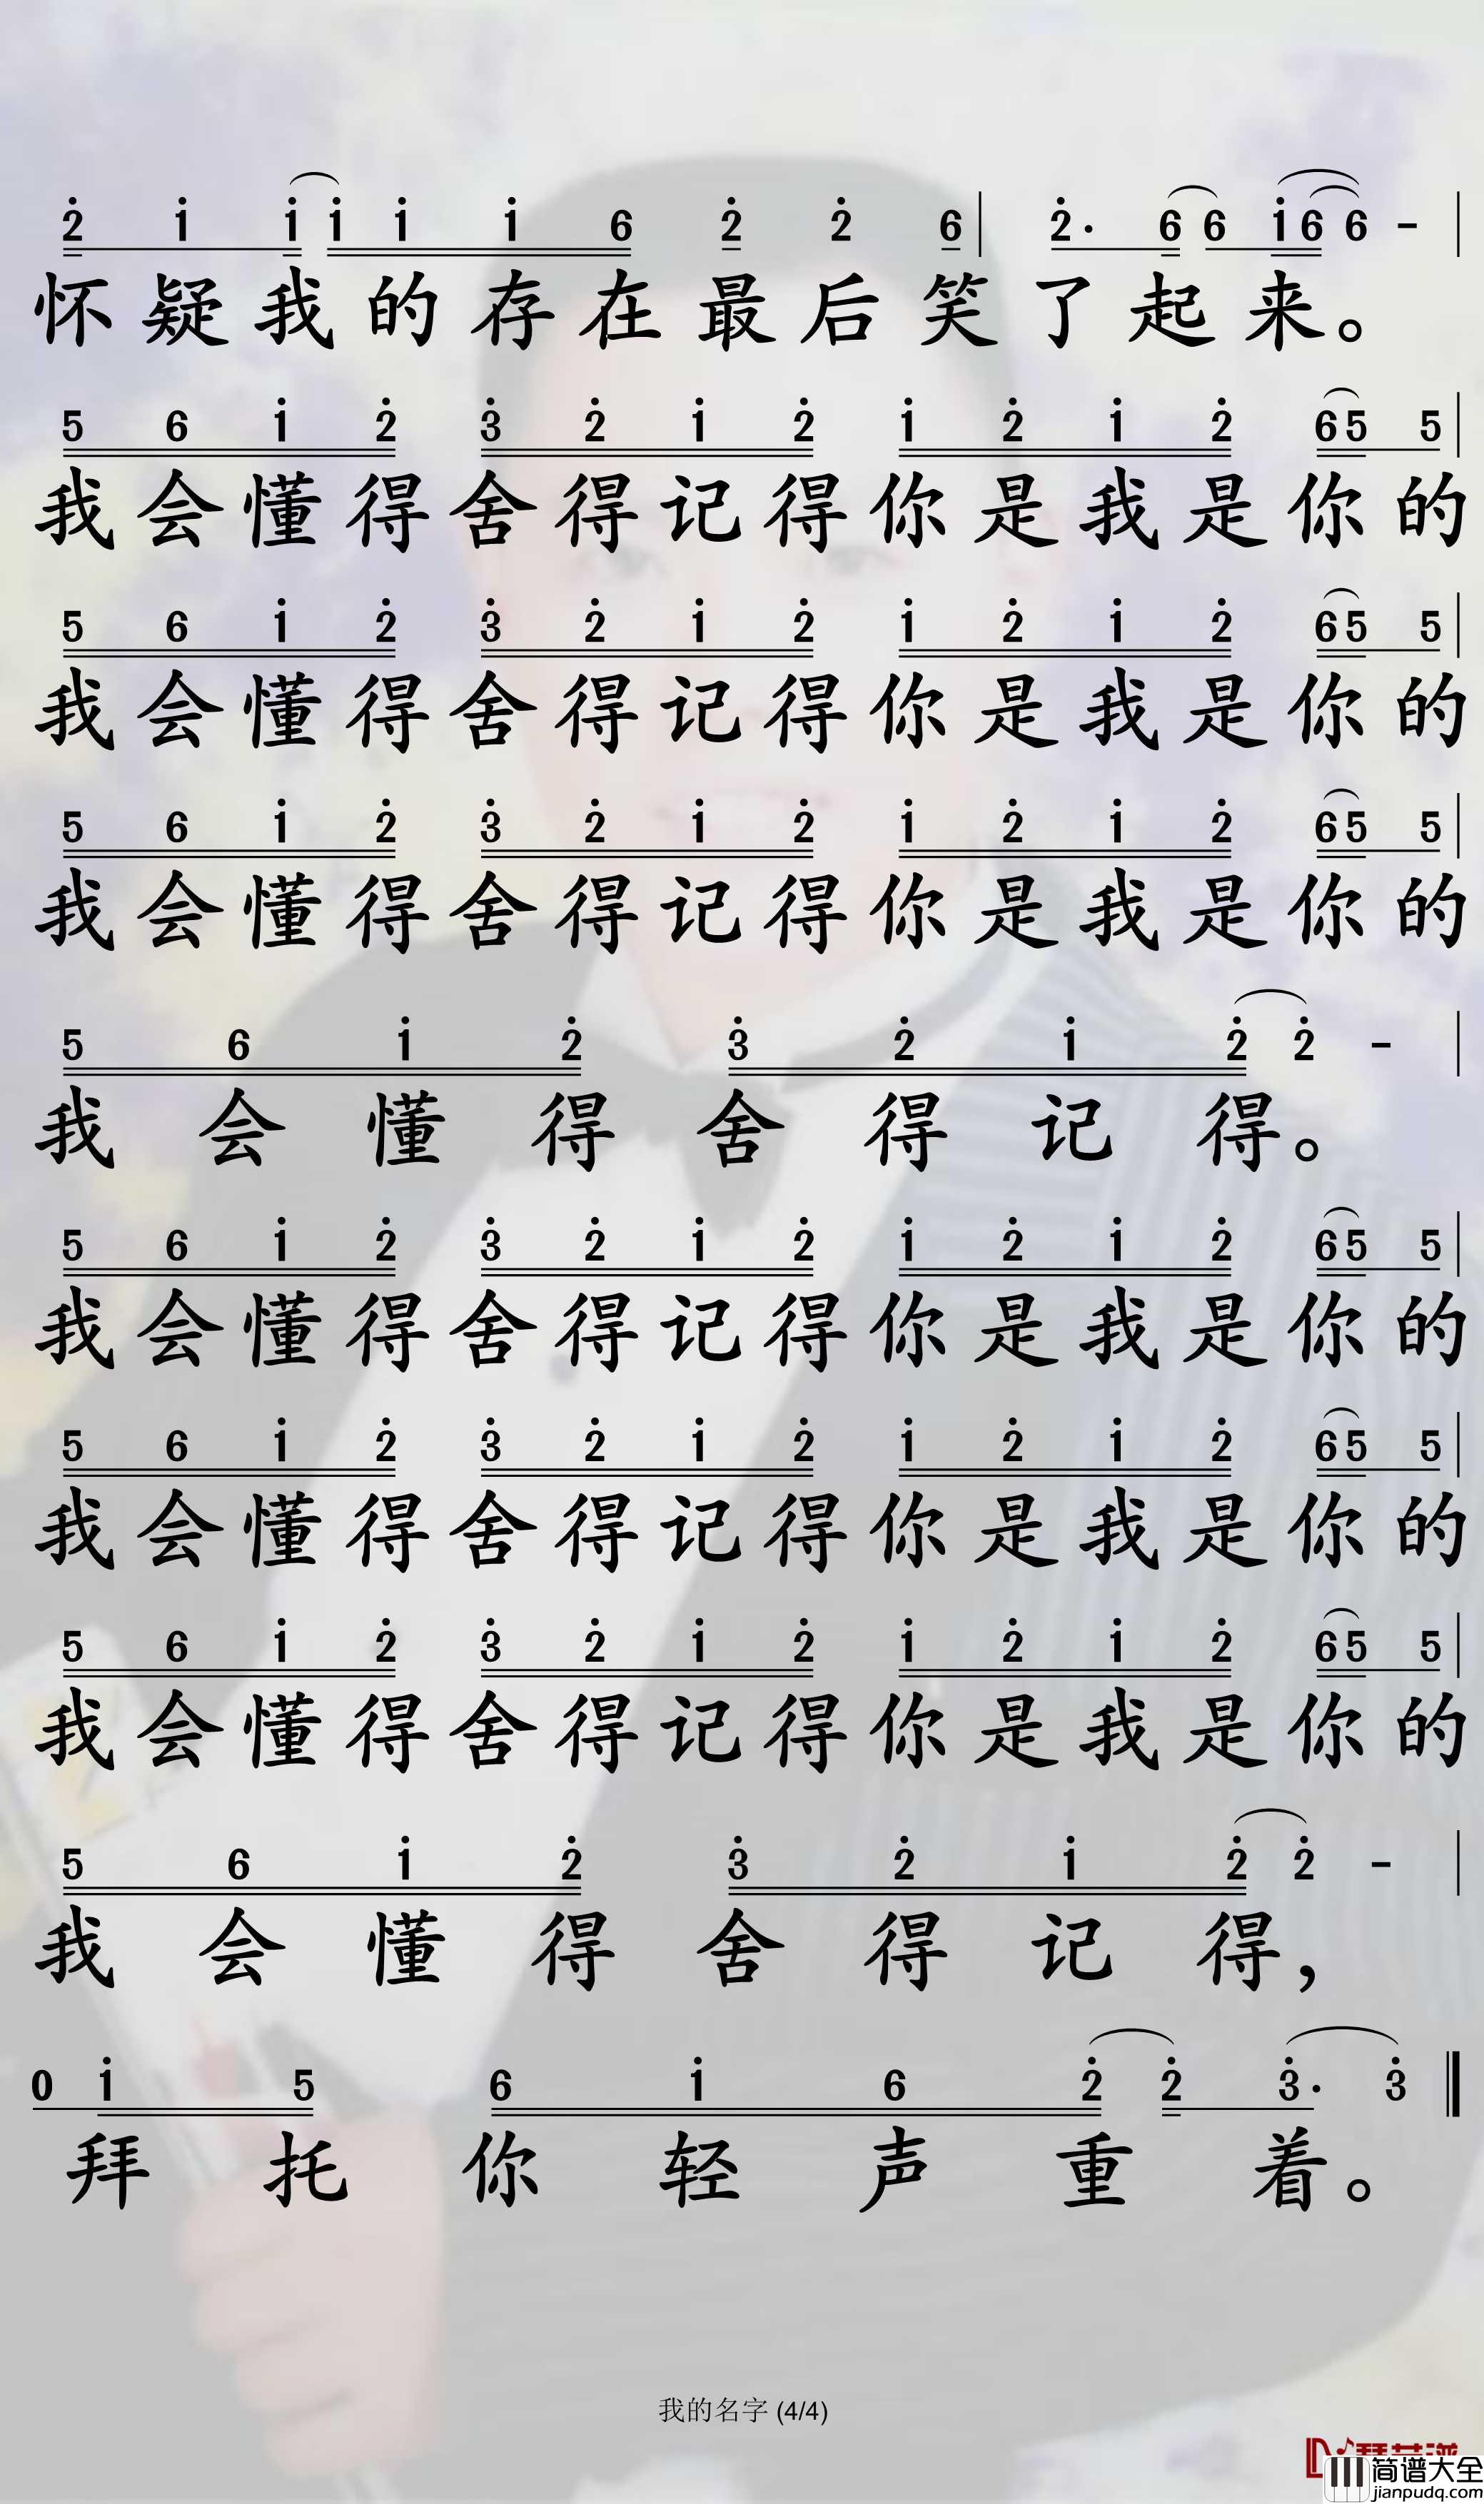 2̇ 1̇ 1̇ 1̇ 1̇ 1̇ 6 2̇ 2̇ 6 | 2̇· 6 6 1̇ 6 6 - |
怀疑我的存在最后笑了起来。
5 6 1̇ 2̇ 3̇ 2̇ 1̇ 2̇ 1̇ 2̇ 1̇ 2̇ 6 5 5 |
我会懂得舍得记得你是我是你的
5 6 1̇ 2̇ 3̇ 2̇ 1̇ 2̇ 1̇ 2̇ 1̇ 2̇ 6 5 5 |
我会懂得舍得记得你是我是你的
5 6 1̇ 2̇ 3̇ 2̇ 1̇ 2̇ 1̇ 2̇ 1̇ 2̇ 6 5 5 |
我会懂得舍得记得你是我是你的
5 6 1̇ 2̇ 3̇ 2̇ 1̇ 2̇ 2̇ - |
我会懂得舍得记得。
5 6 1̇ 2̇ 3̇ 2̇ 1̇ 2̇ 1̇ 2̇ 1̇ 2̇ 6 5 5 |
我会懂得舍得记得你是我是你的
5 6 1̇ 2̇ 3̇ 2̇ 1̇ 2̇ 1̇ 2̇ 1̇ 2̇ 6 5 5 |
我会懂得舍得记得你是我是你的
5 6 1̇ 2̇ 3̇ 2̇ 1̇ 2̇ 1̇ 2̇ 1̇ 2̇ 6 5 5 |
我会懂得舍得记得你是我是你的
5 6 1̇ 2̇ 3̇ 2̇ 1̇ 2̇ 2̇ - |
我会懂得舍得记得，
0 1̇ 5 6 1̇ 6 2̇ 2̇ 3̇· 3̇ ‖
拜托你轻声重着。
我的名字 (4/4)
简谱大全
jianpudq.com